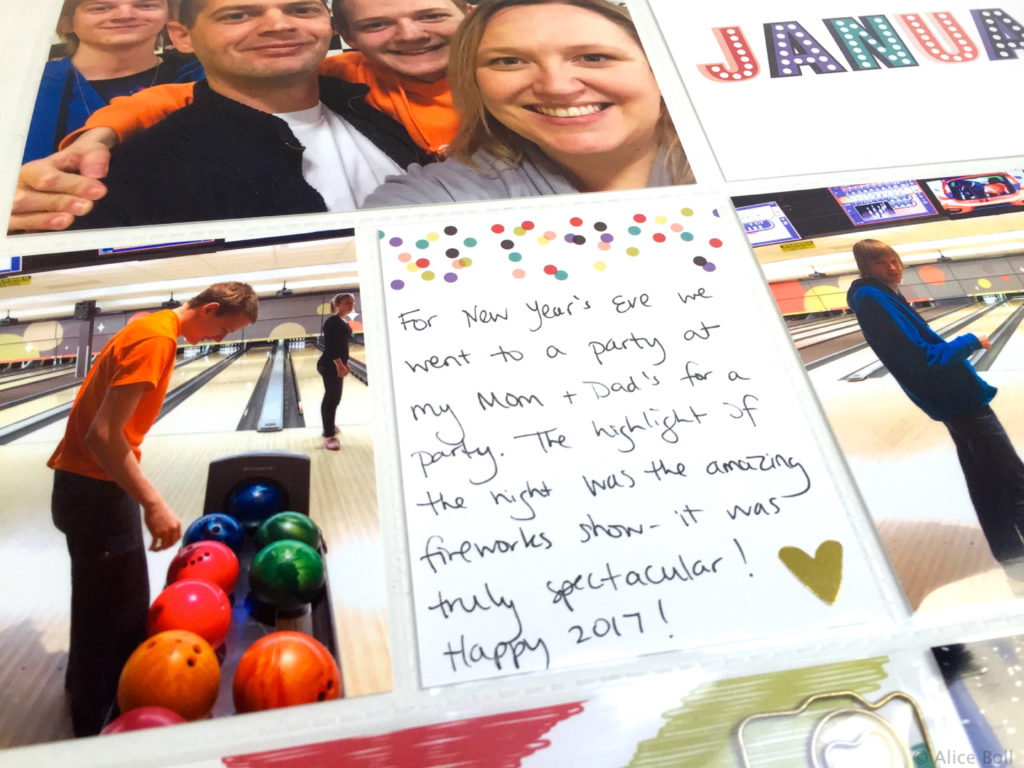 JANUA
For New Year's Eve we
went to a party at
my Mom + Dad's for a
party. The highlight of
the night was the amazing
fireworks show - it was
truly spectacular!
Happy 2017!
© Alice Boll